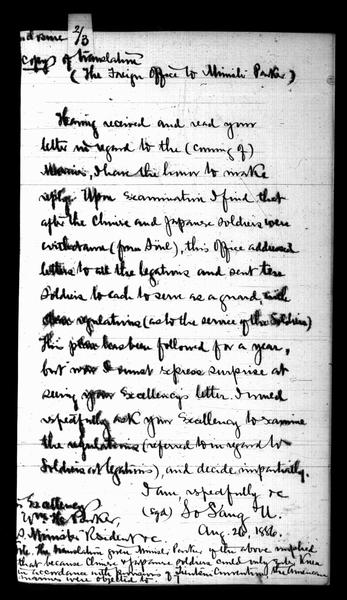 2/3
Copy of translation
(The Foreign Office to Minister Parker)
Having received and read your
letter in regard to the (coming of)
Marines, I have the honor to make
reply. Upon Examination I find that
after the Chinese and Japanese Soldiers were
withdrawn (from Söul), this Office addressed
letters to all the legations and sent ten
Soldiers to each to serve as a guard, with
regulations (as to the service of the Soldiers)
This plan has been followed for a year,
but now I must express surprise at
seeing your Excellency's letter. I would
respectfully ask your Excellency to examine
the regulations (referred to in regard to
Soldiers at legations), and decide impartially.
I am, respectfully &c
(Sgd) So Sang U.
Aug. 26, 1886.
Excellency
Wm. H. Parker,
Minister Resident &c.
The translation given Minister Parker of the above implied
that because Chinese & Japanese soldiers could only enter Korea
in accordance with provisions of Tientsin Convention, the American
marines were objected to.